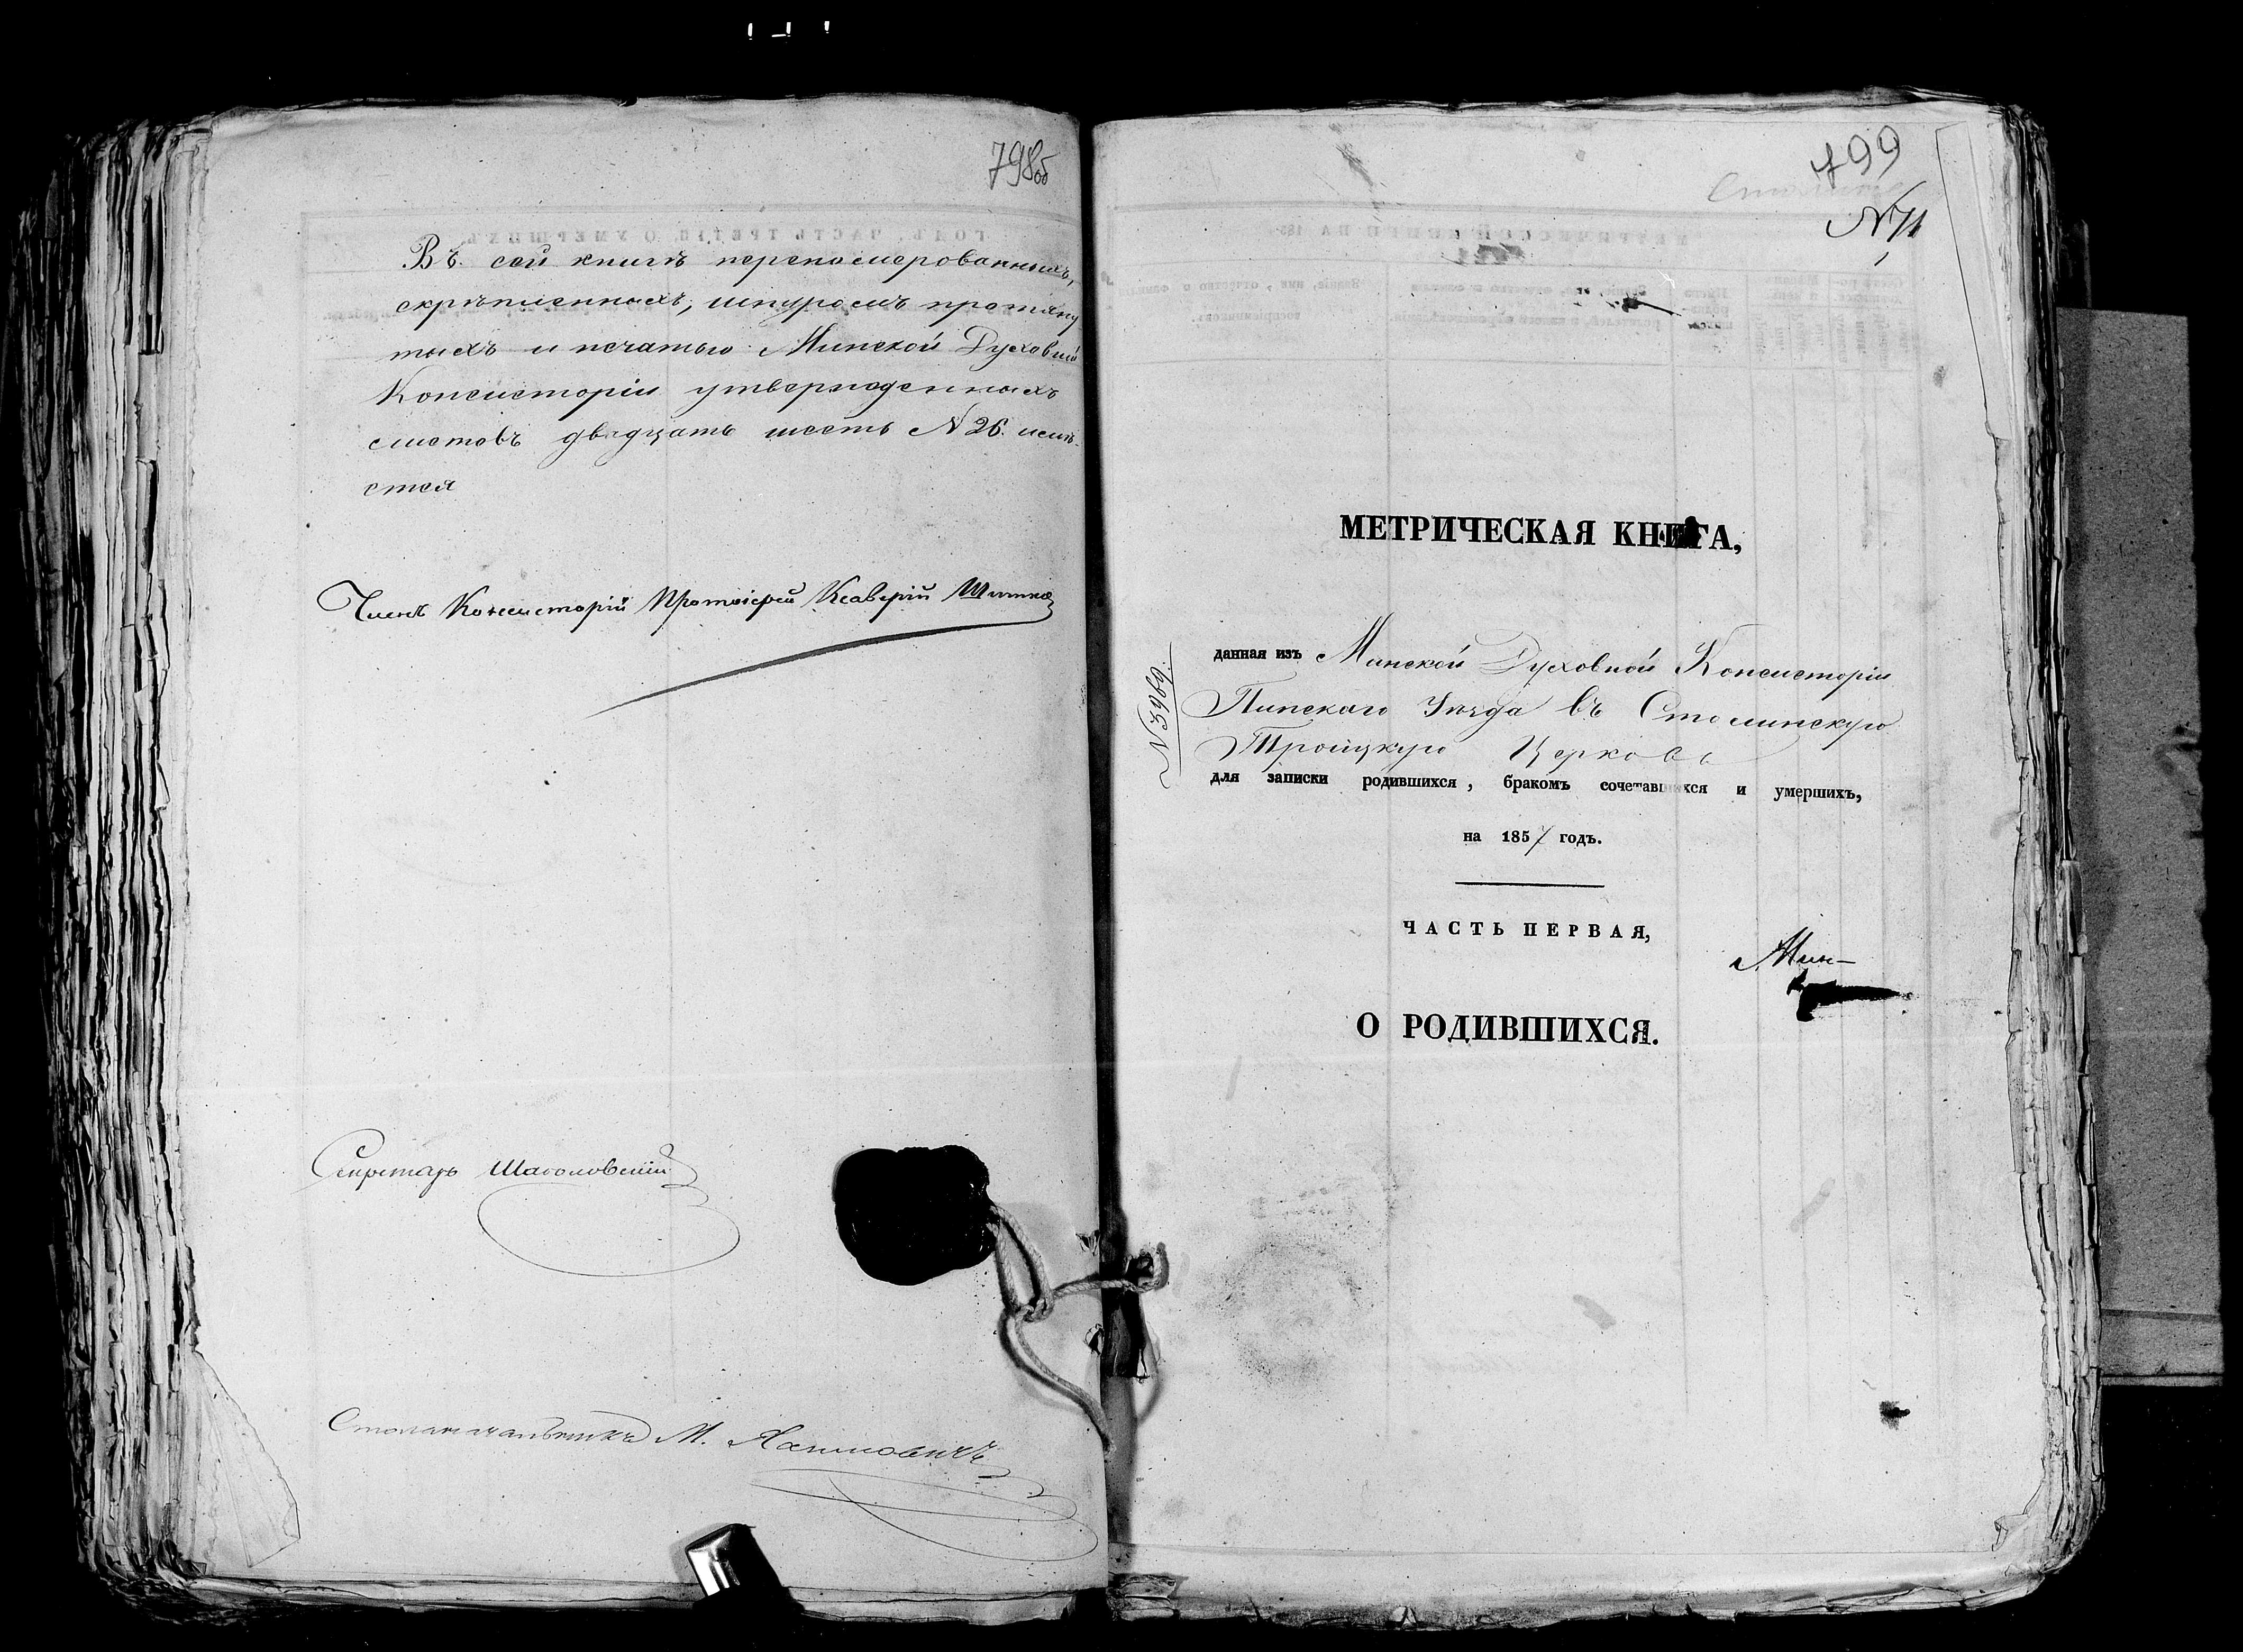 798об
Въ сей книгѣ перенумерованныхъ,
скрѣпленныхъ, шнуромъ протяну
тыхъ и печатью Минской Духовной
Консисторіи утвержденныхъ
листовъ двадцать шесть №26. имѣ-
ется
Членъ Консисторіи Протоіерей Ксаверій
Секретарь
Столоначальникъ М.
799
№ 71
МЕТРИЧЕСКАЯ КНИГА,
№ 3969.
данная изъ Минской Духовной Консисторіи
Пинскаго Уѣзда въ Столинскую
Троицкую Церковь
для записки родившихся, бракомъ сочетавшихся и умершихъ,
на 1857 годъ.
ЧАСТЬ ПЕРВАЯ,
Мин-
О РОДИВШИХСЯ.